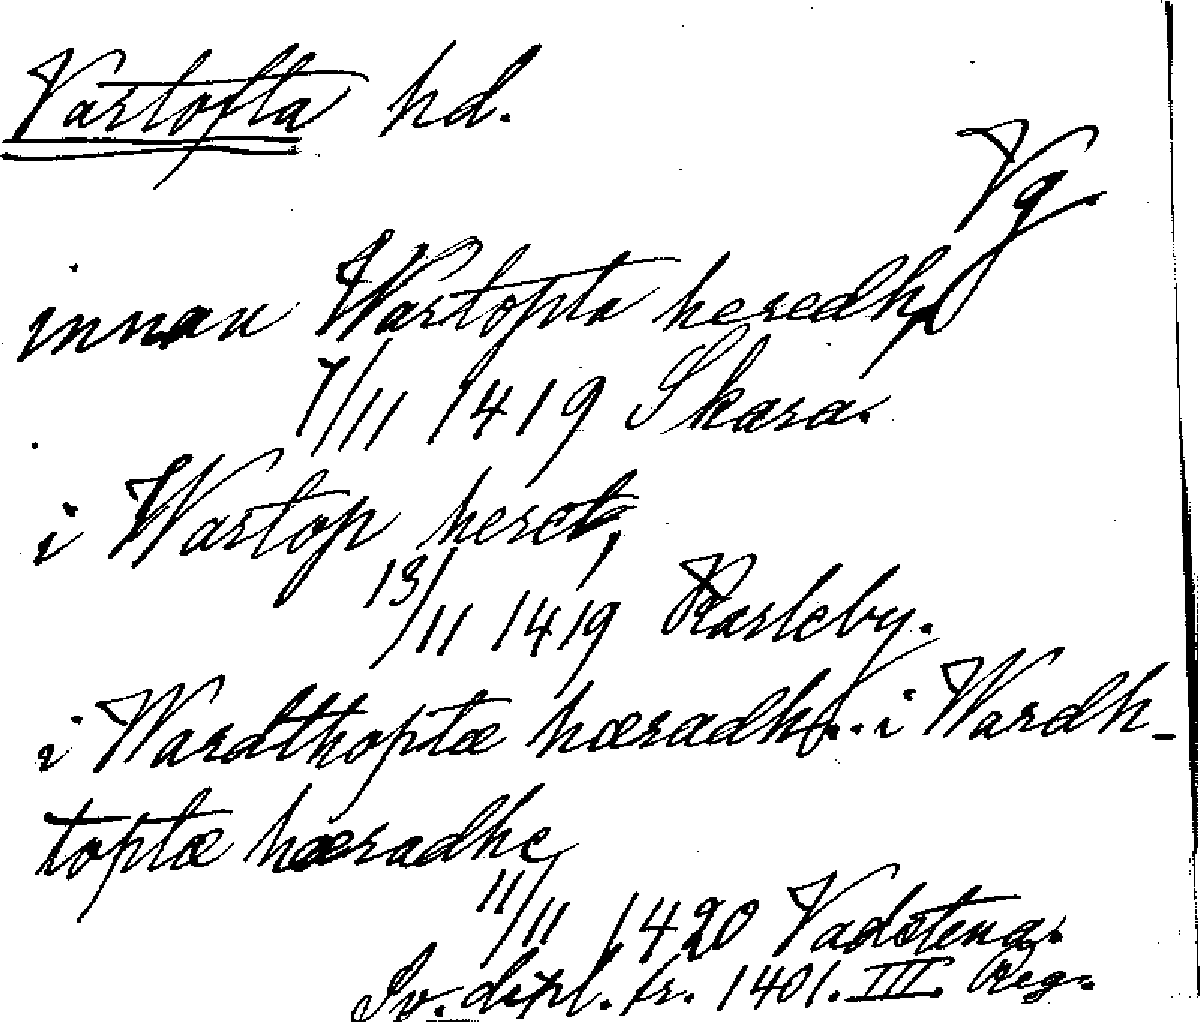 Vartofta hd.
Vg
innan Wartopta heredh,
7/11 1419 Skara.
i Wartop heret,
13/11 1419 Karleby.
i Wardthoptæ hæradhe.. i Wardh-
toptæ hæradhe,
11/11 1420 Vadstena.
Sv. dipl. fr. 1401. III. Reg.